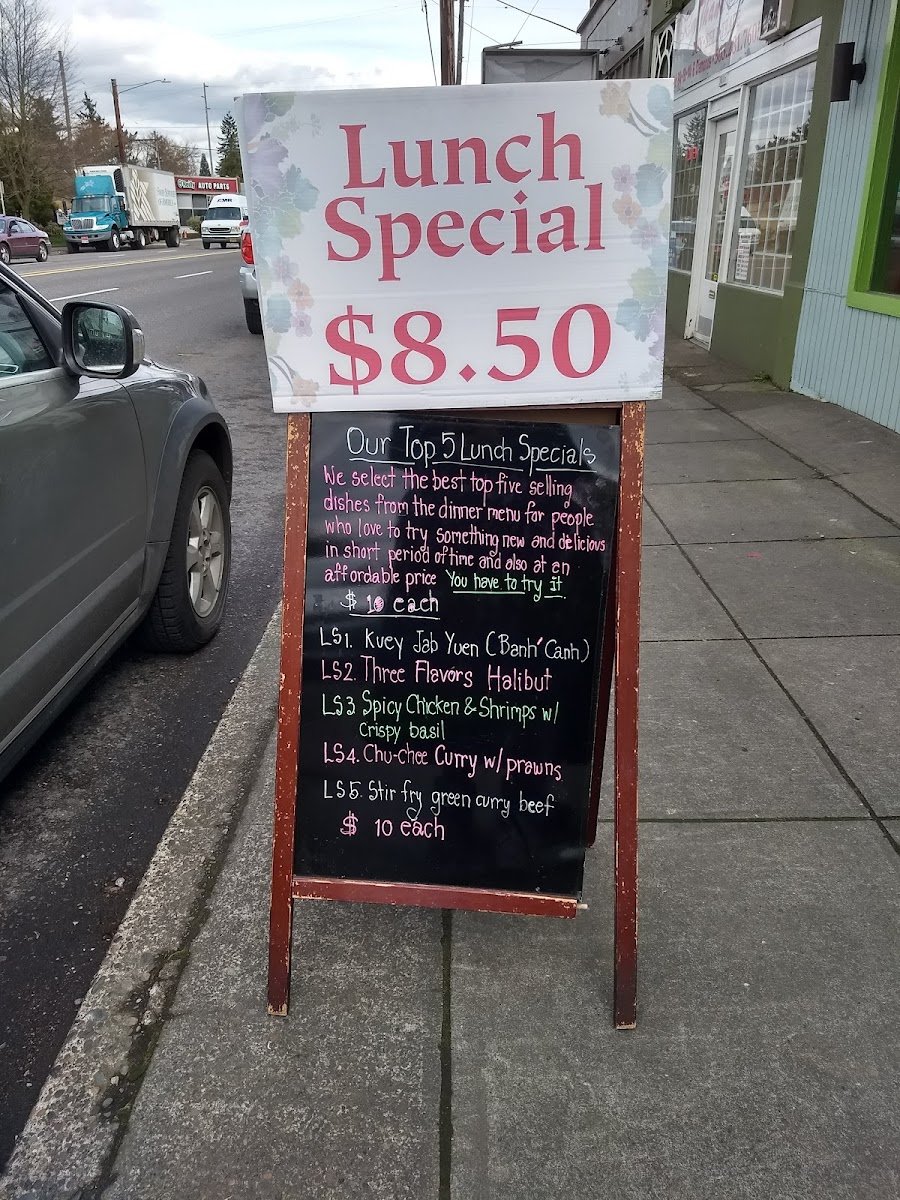 Lunch
Special
$8.50
Our Top 5 Lunch Specials
We select the best top five selling
dishes from the dinner menu for people
who love to try something new and delicious
in short period of time and also at en
affordable price You have to try it.
$ 10 each
LS1. Kuey Jab Yuen (Banh' Canh)
LS2. Three Flavors Halibut
LS3 Spicy Chicken & Shrimps w/
crispy basil
LS4. Chu-chee Curry w/ prawns
LS5. Stir fry green curry beef
$ 10 each
O'Reilly AUTO PARTS